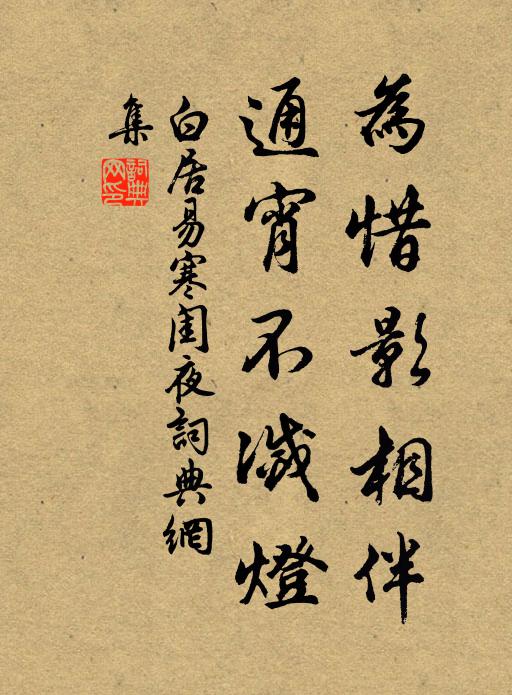 為惜影相伴
通宵不滅燈
白居易寒閨夜詞典網
集
詞典網印